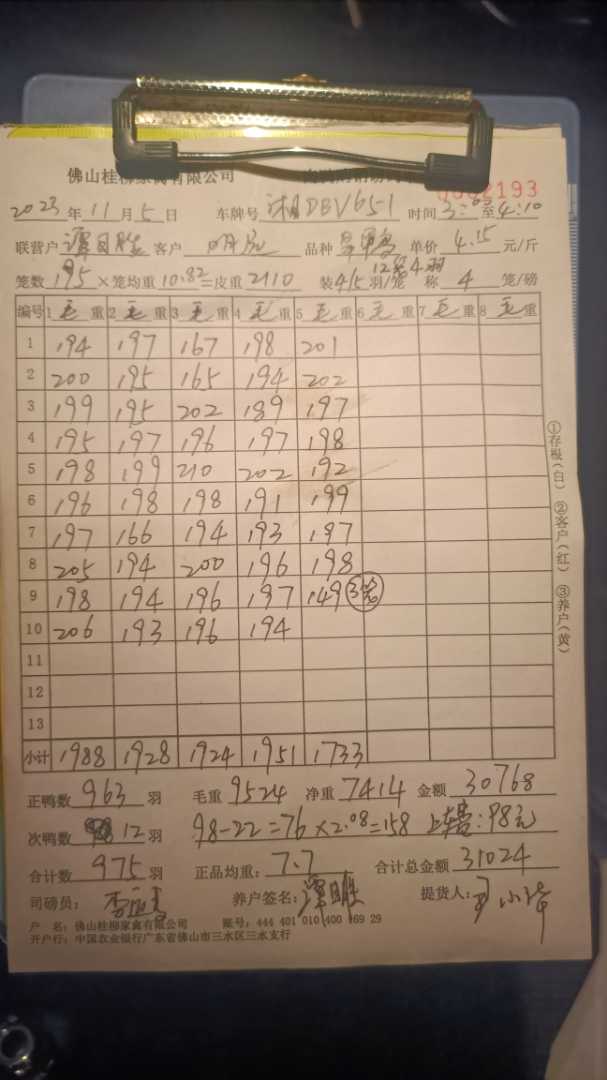 佛山桂柳家禽有限公司
0002193
2023 年 11 月 5 日 车牌号 湘DBV651 时间 3:05 至 4:10
联营户 客户 品种 单价 4.15 元/斤
笼数 195 ×笼均重 10.82 =皮重 2110 装 4/5 羽/笼 12笼4羽 称 4 笼/磅
编号 1 毛 重 2 毛 重 3 毛 重 4 毛 重 5 毛 重 6 毛 重 7 毛 重 8 毛 重
1 194 197 167 198 201
2 200 195 165 194 202
3 199 195 202 189 197
4 195 197 196 197 198
5 198 199 210 202 192
6 196 198 198 191 199
7 197 166 194 193 197
8 205 194 200 196 198
9 198 194 196 197 149 3笼
10 206 193 196 194
11
12
13
小计 1988 1928 1924 1951 1733
①存根(白) ②客户(红) ③养户(黄)
正鸭数 963 羽 毛重 9524 净重 7414 金额 30768
次鸭数 12 羽 98-22=76×2.08=158 上车费:98元
合计数 975 羽 正品均重: 7.7 合计总金额 31024
司磅员: 养户签名: 提货人:
户 名: 佛山桂柳家禽有限公司 账号: 444 401 010 400 69 29
开户行: 中国农业银行广东省佛山市三水区三水支行